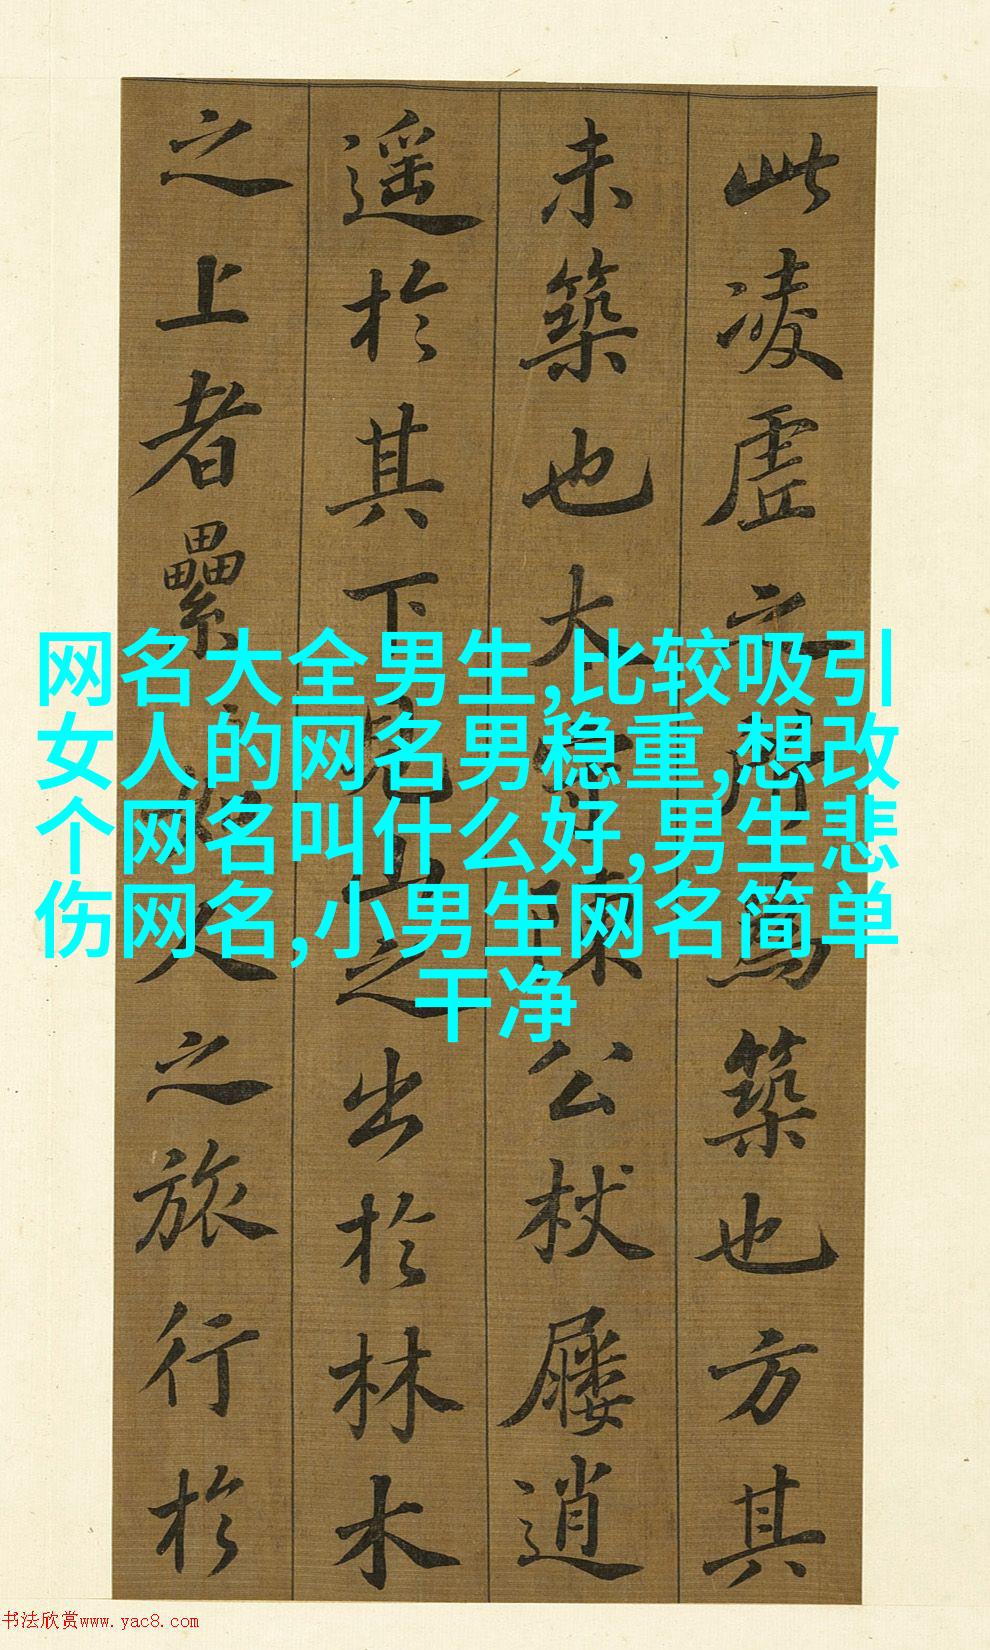 此凌虛之所為築也方其
未築也太守陳公杖屨逍
遥於其下見山之出於林木
之上者纍如人之旅行於
网名大全男生,比较吸引
女人的网名男稳重,想改
个网名叫什么好,男生悲
伤网名,小男生网名简单
干净
书法欣赏www.yac8.com